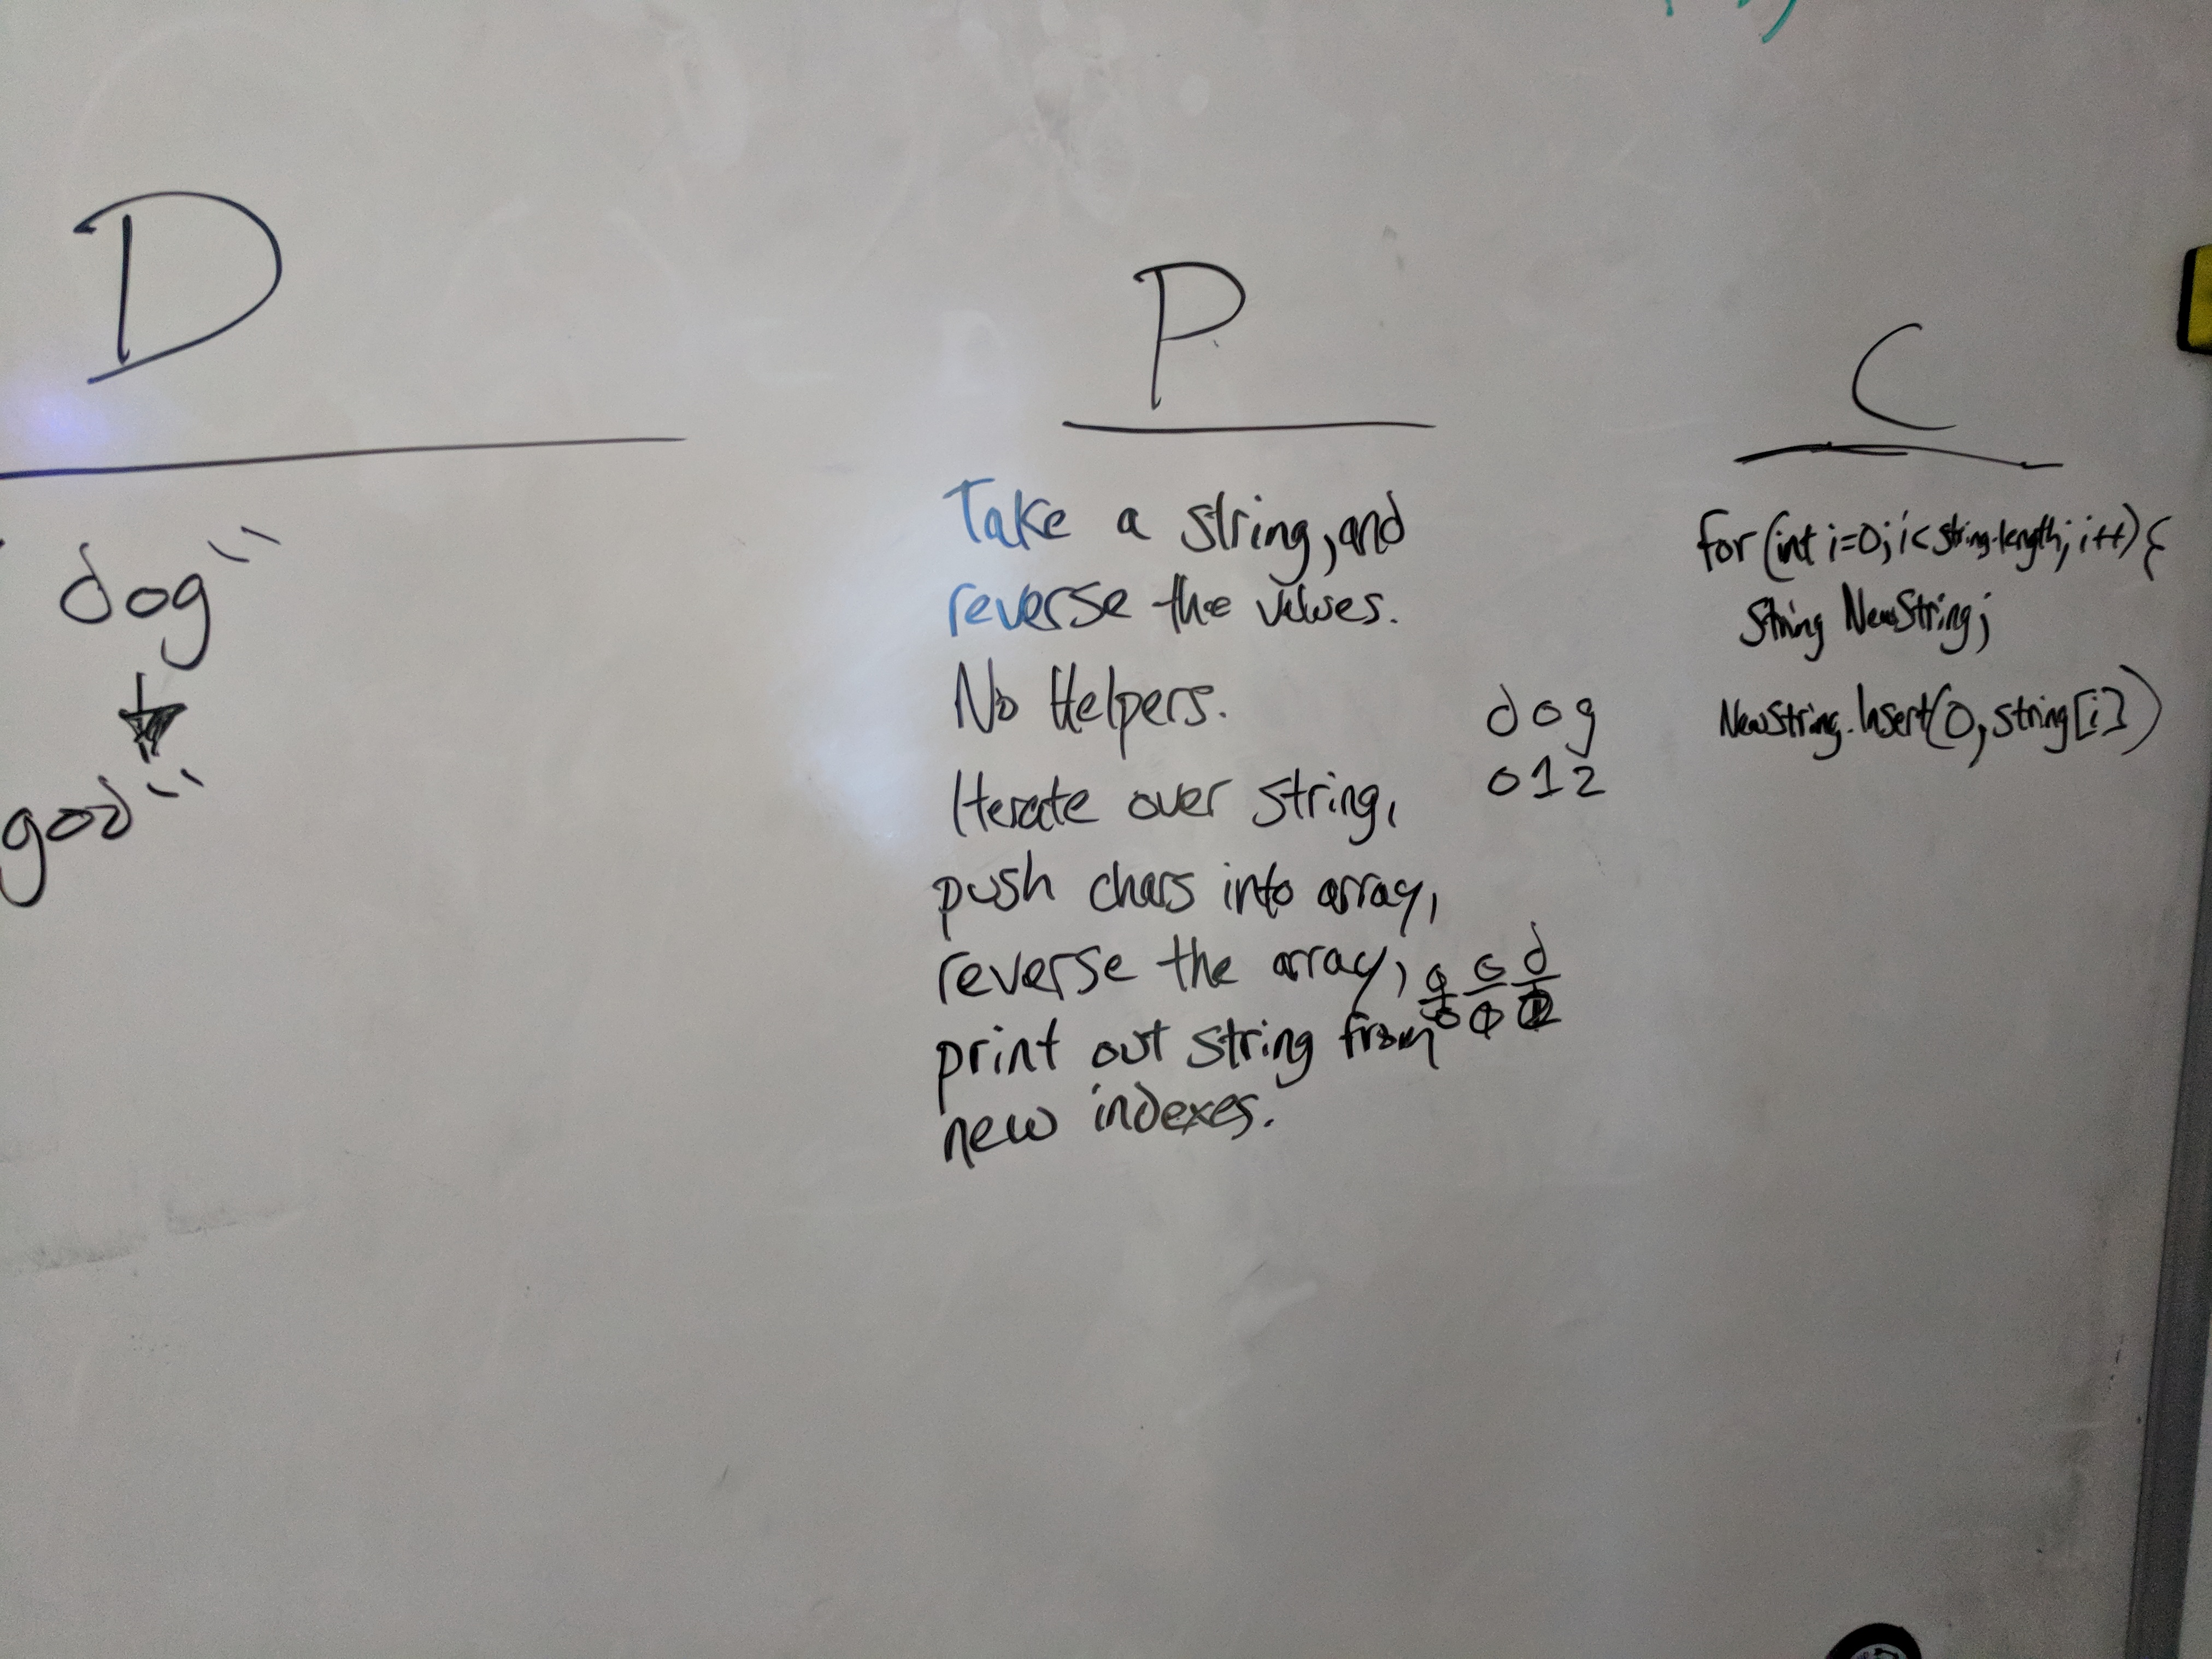 D
dog"
god"
P
Take a string, and
reverse the values.
No Helpers.
Iterate over string,
push chars into array,
reverse the array,
print out string from
new indexes.
dog
012
g o d
0 1 2
C
for (int i=0; i<string.length; i++) {
String NewString;
NewString.Insert(0, string[i])